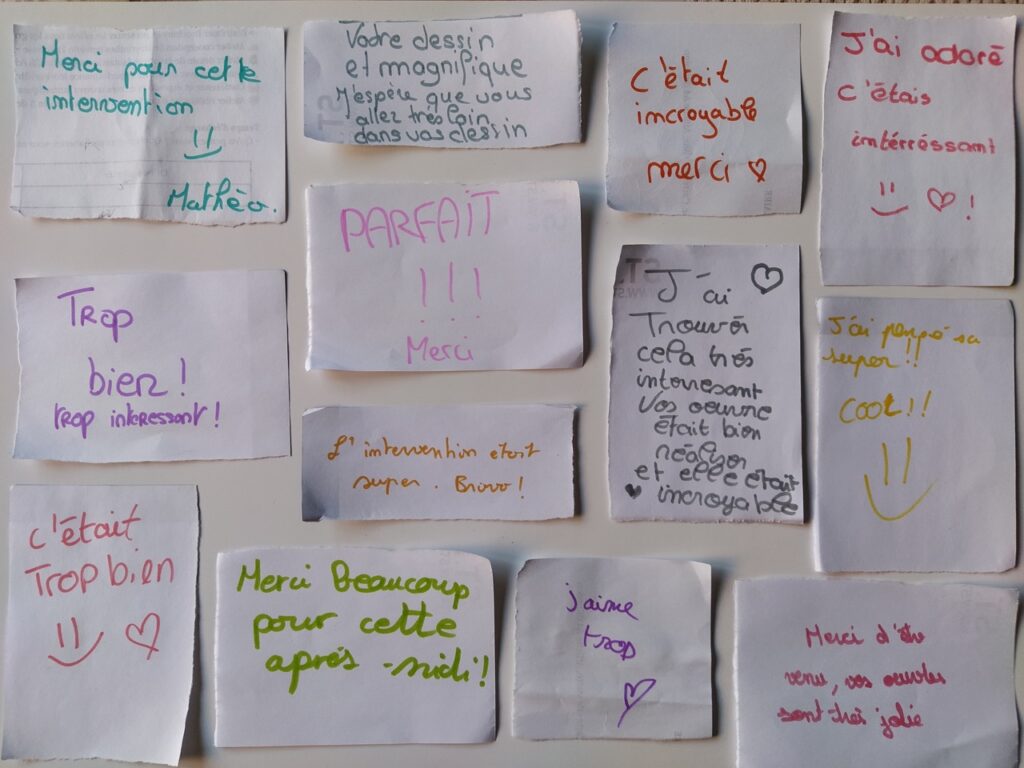 Merci pour cette
intervention
Mathéo.
Votre dessin
et magnifique
J'espère que vous
allez très loin
dans vos dessin
C'était
incroyable
merci
J'ai adoré
C'étais
intérréssant
!
PARFAIT
!!!
Merci
Trop
bien!
trop interessant!
J'ai
Trouvér
cela très
interresant
Vos oeuvre
était bien
réaliser
et elle était
incroyable
J'ai penpé sa
super!!
COOL!!
L'intervention etait
super. Bravo!
c'était
Trop bien
Merci Beaucoup
pour cette
après-midi!
j'aime
trop
Merci d'être
venu, vos oeuvres
sont très jolie